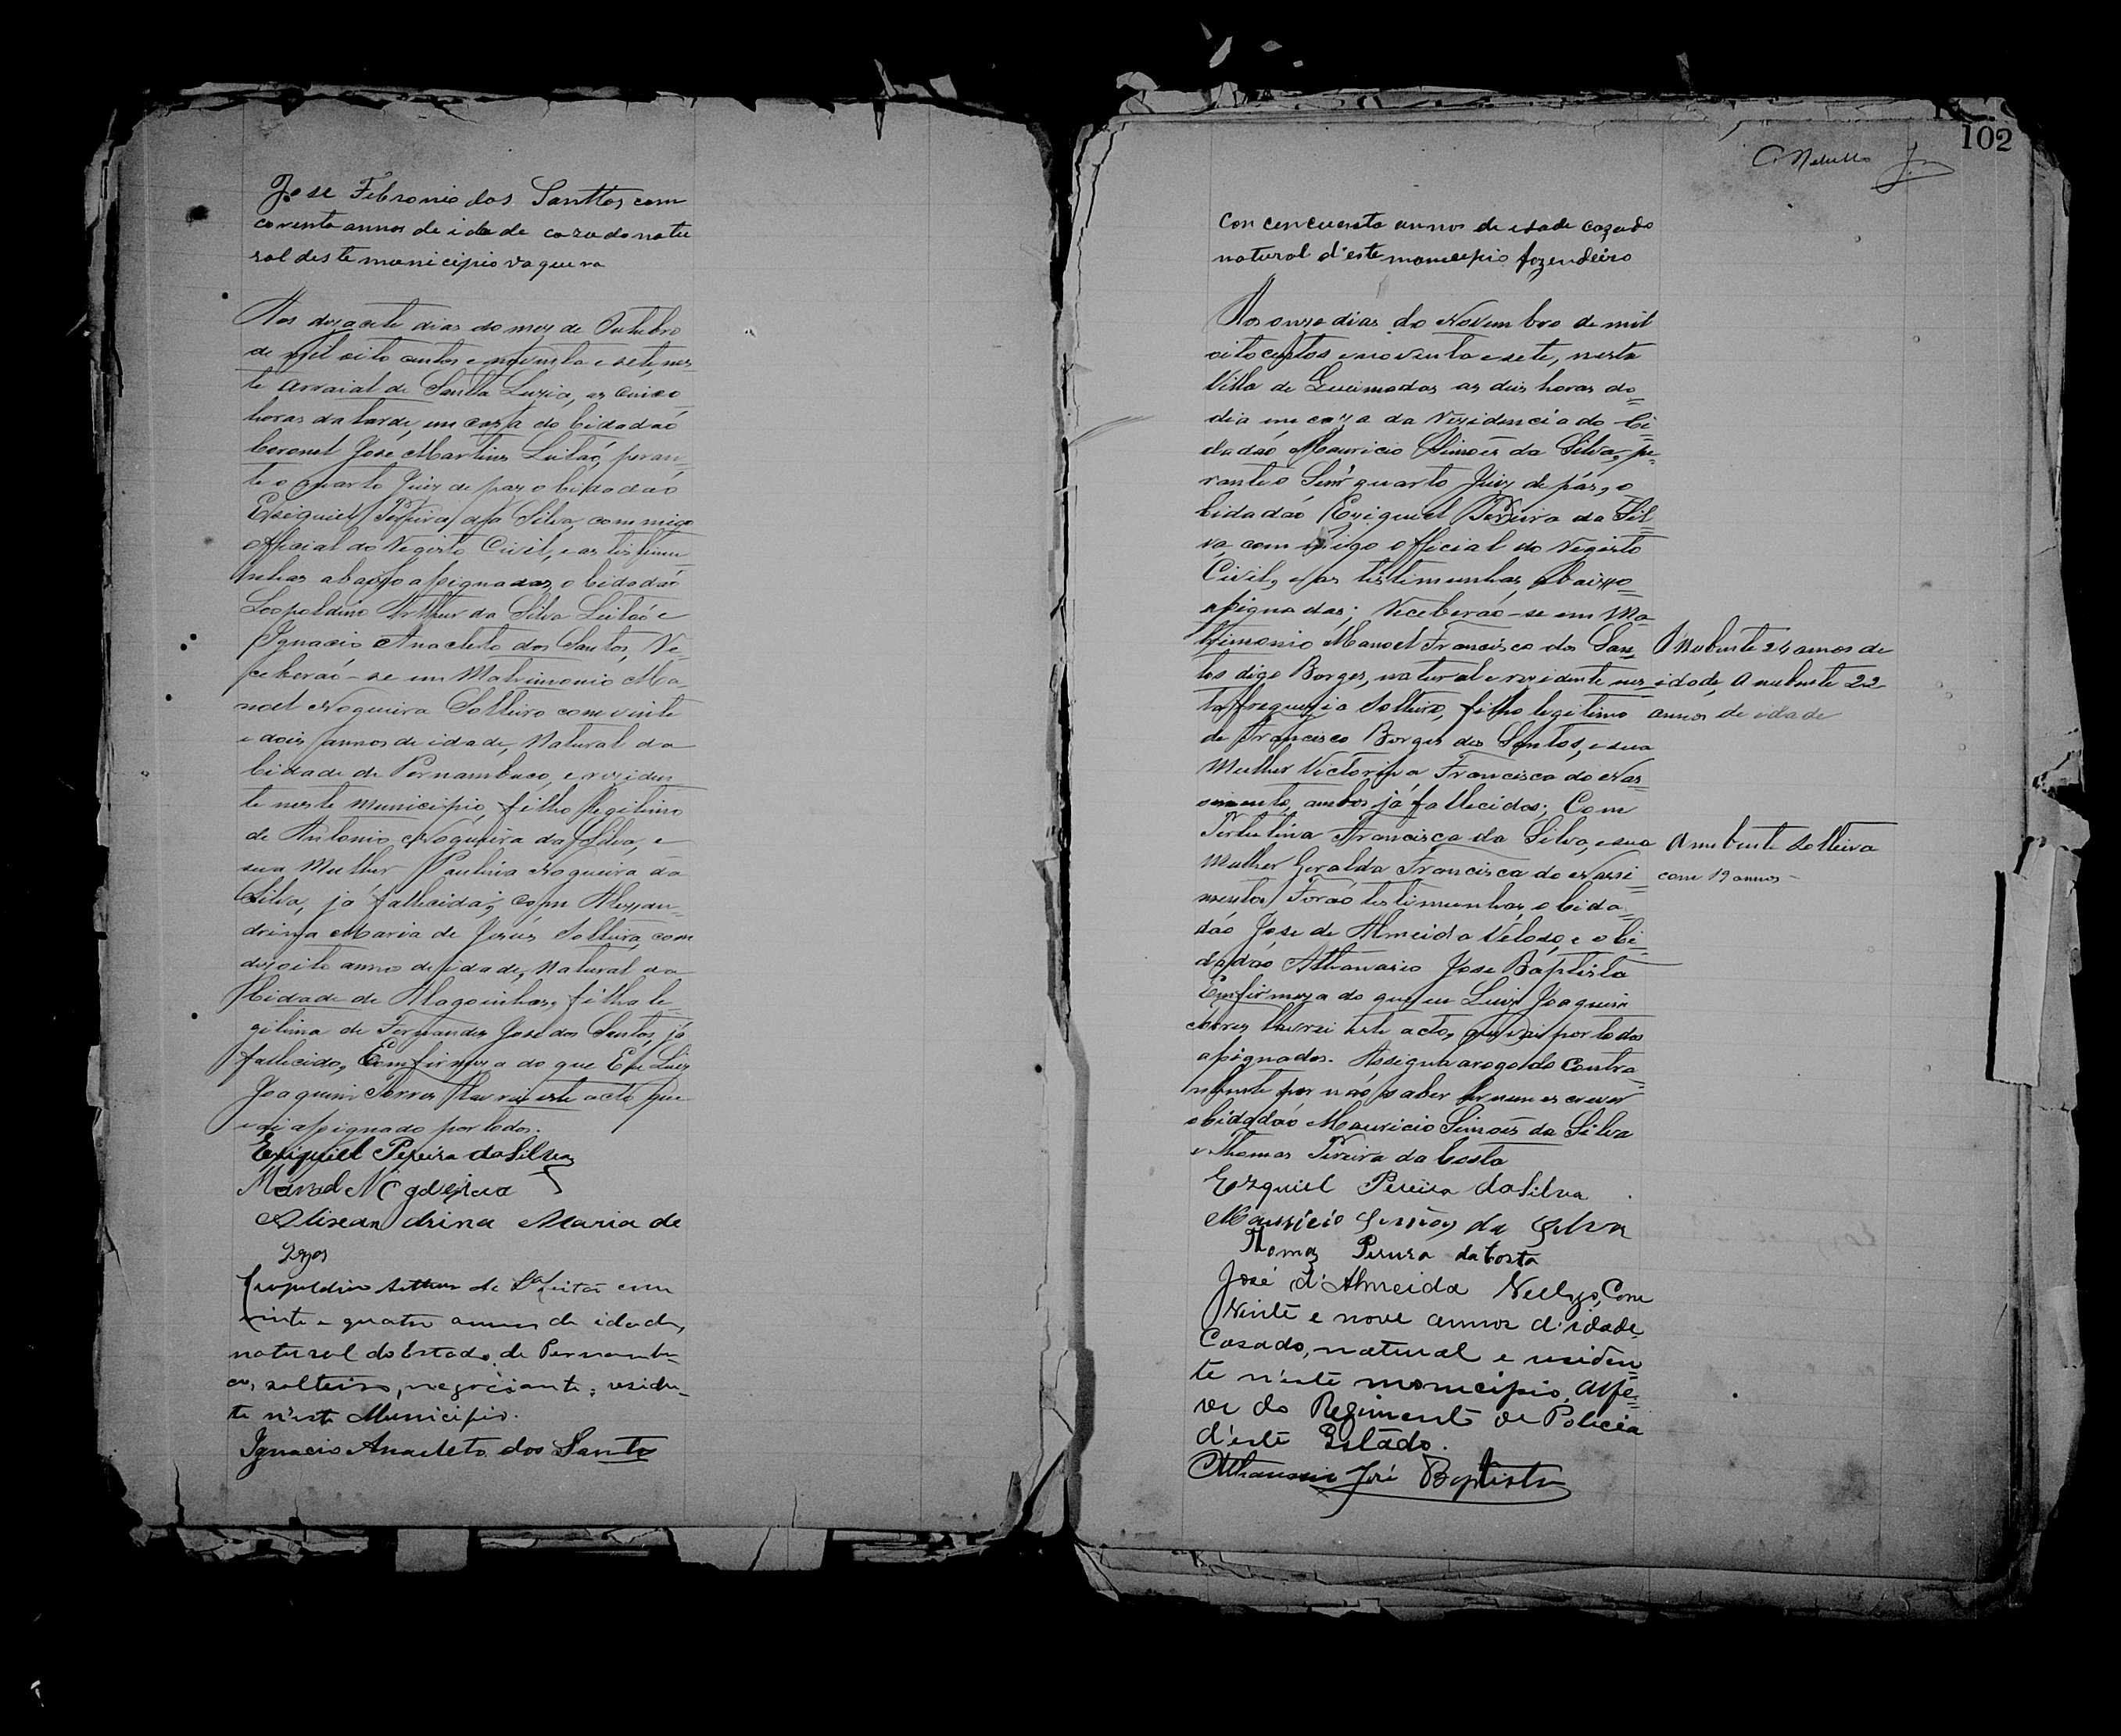 Jose Febronio dos Santtos com
corenta annos de idade cazado natu
ral deste municipio vaqueiro
Aos dezacete dias do mez de Outubro
de mil oito centos e noventa e sete, nes
te Arraial de Santa Luzia, as cinco
horas da tarde, em caza do Cidadaõ
Coronel José Martins Leitaõ, peran-
te o quarto Juiz de paz o Cidadaõ
Esiquiel Pereira da Silva, commigo
official do Registo Civil, e as testimu
nhas abaixo assignadas, o Cidadaõ
Leopoldino Arthur da Silva Leitaõ e
Ignacio Anacleto dos Santos, Re-
ceberaõ-se em Matrimonio Ma-
noel Nogueira Solteiro com vinte
e dois annos de idade, Natural da
Cidade de Pernambuco, e reziden
te neste municipio, filho legitimo
de Antonio Nogueira da Silva, e
sua Mulher Paulina Nogueira da
Silva, já fallecida; com Alexan-
drina Maria de Jesús Solteira, com
dezoito annos de idade, Natural da
Cidade de Alagoinhas, filha le-
gitima de Fernandes José dos Santos, já
fallecido, Em firmeza do que Eu Luiz
Joaquim Torres Lavrei este acto que
vai assignado por todos.
Eziquiel Pereira da Silva
Manoel Nogueira
Alixandrina Maria de
Jezos
Leopoldino Arthur da Sª Leitão com
vinte e quatro annos de idade,
natural do Estado de Pernambu-
co, solteiro, negociante, residen-
te n'este Municipio.
Ignacio Anacleto dos Santos
102
con cencuenta annos de idade cazado
natural d'este monicepio fazendeiro
Aos onze dias do Novembro de mil
oitocentos e noventa e sete, nesta
Villa de Queimadas as dois horas do
dia em caza da Rezidencia do Ci-
dadaõ Mauricio Simões da Silva, pe-
rante o Senr quarto Juiz de páz, o
Cidadaõ Eziquiel Pereira da Sil-
va, commigo official do Registo
Civil, e as testimunhas abaixo
assignadas; Receberaõ-se em Ma-
trimonio Manoel Francisco dos San-
tos digo Borges, natural e rezidente nes-
ta freguezia Solteiro, filho legitimo
de Francisco Borges dos Santos, e sua
Mulher Victorina Francisca do Nas-
simento, ambos já fallecidos; Com
Tertulina Francisca da Silva, e sua
Mulher Geralda Francisca do Nassi-
mento, Foraõ testimunhas o Cida-
daõ Jose de Almeida Velôso, e o Ci-
dadaõ Athanasio Jose Baptista
Em firmeza do que eu Luiz Joaquim
Torres Lavrei este acto, que vai por todos
assignados. Assigna arogo do Contra-
nhente por não saber ler nem escrever
o Cidadaõ Mauricio Simões da Silva
e Thomas Pereira da Costa
Ezquiel Pereira da Silva
Mauricio Simões da Silva
Thomaz Pereira da Costa
José d'Almeida Vellozo, Com
Vinte e nove annos d'idade,
Casado, natural e residen
te n'este monicipio, Alfe-
res do Regimento de Policia
d'este Estado.
Athanasio José Baptista
O Nubente 24 annos de
idade, A nubente 22
annos de idade
A nubente solteira
com 19 annos-